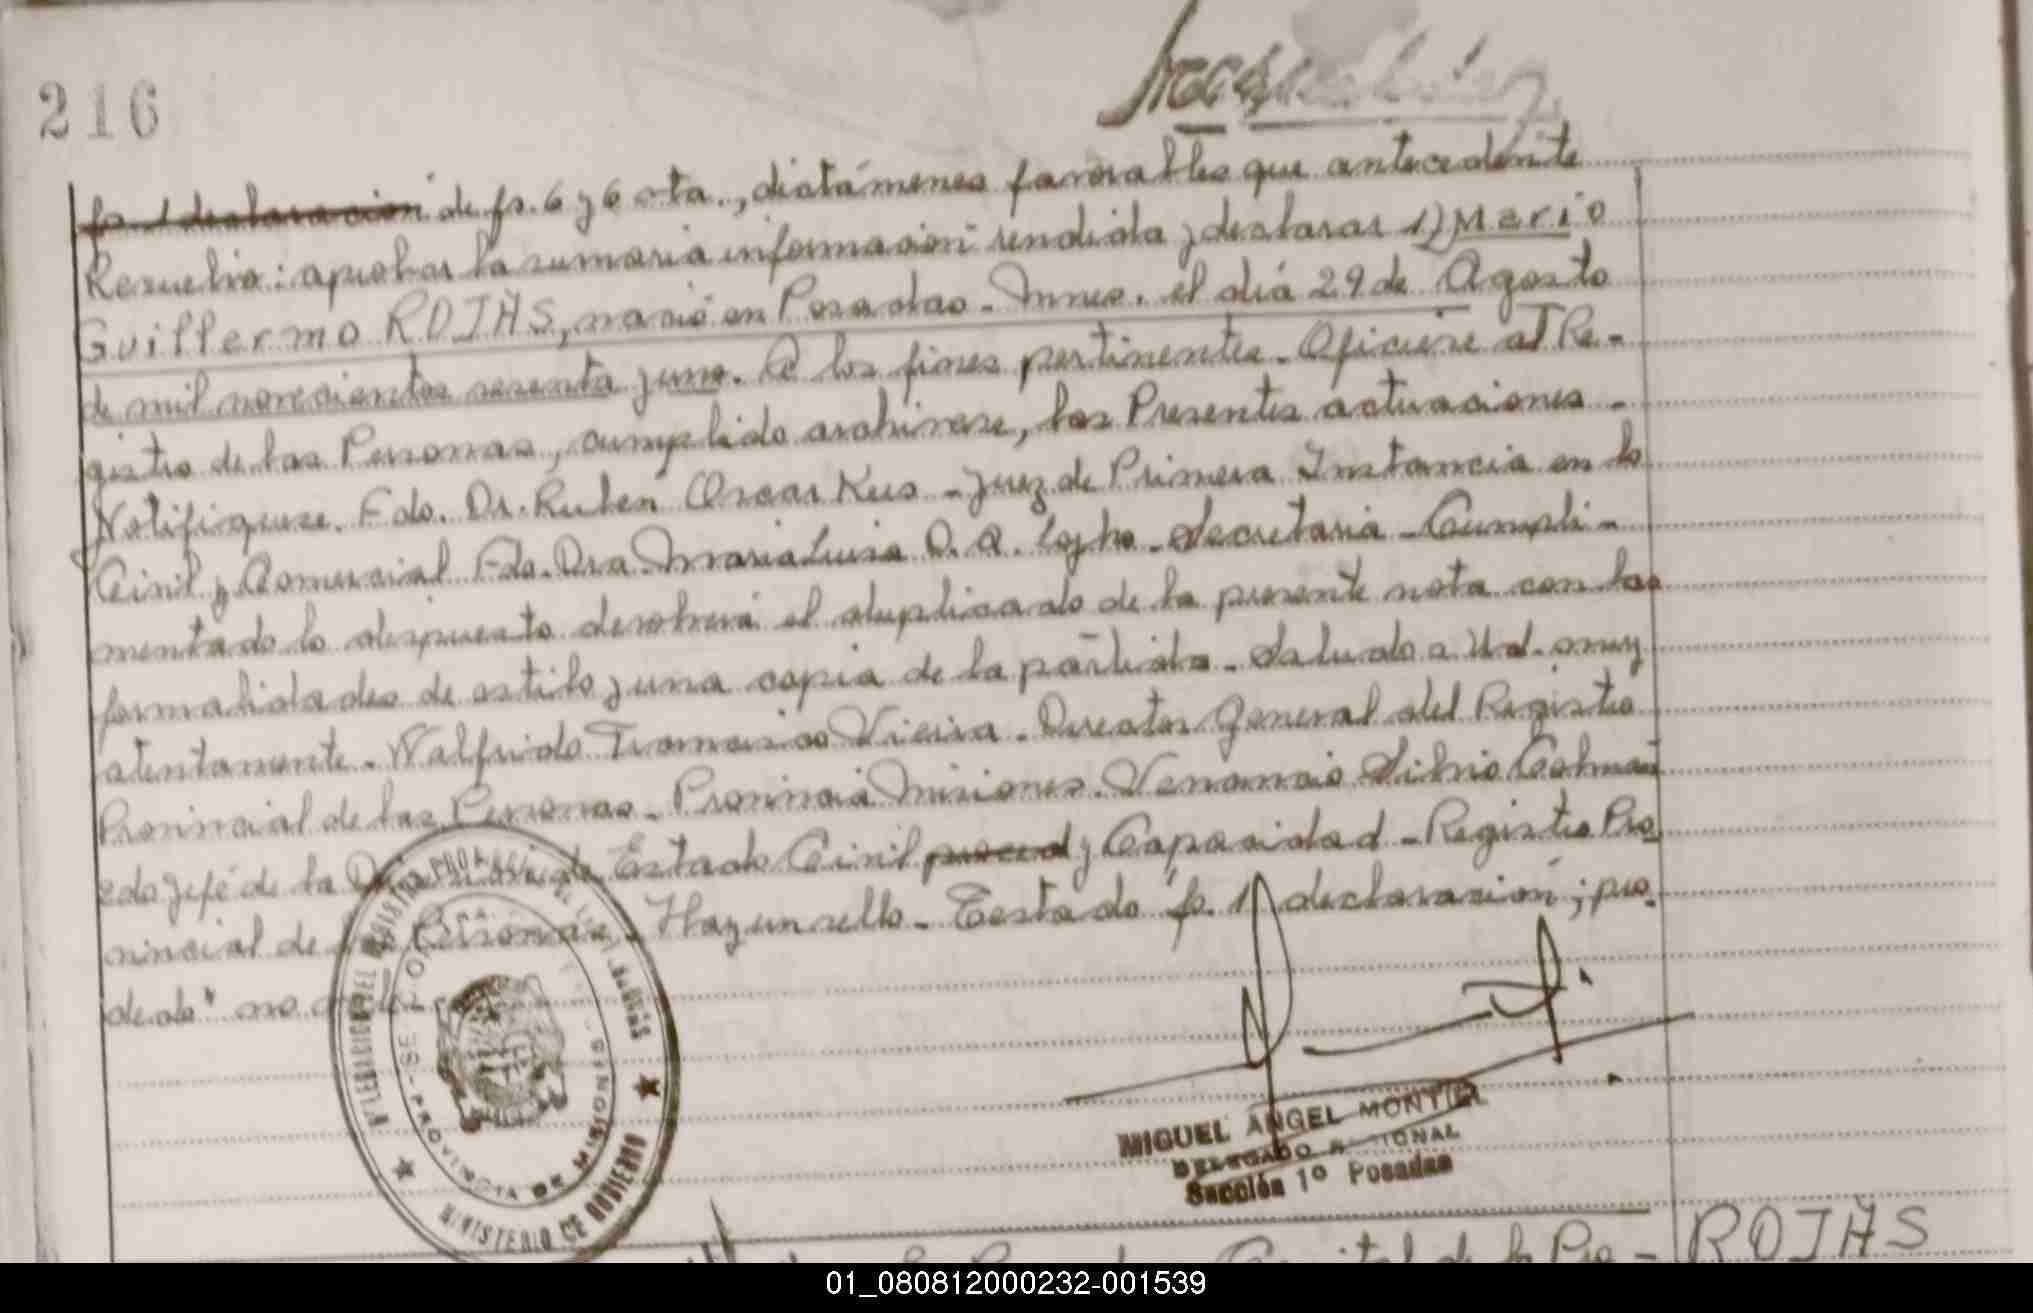 216
fs. 1 declaracion de fs. 6 y 6 vta., dictámenes favorables que antecedente
Resuelvo: aprobar la sumaria información rendida y declarar 1) Mario
Guillermo ROJAS, nació en Posadas - Mnes. el día 29 de Agosto
de mil novecientos sesenta y uno. A los fines pertinentes. Ofíciese al Re-
gistro de las Personas, cumplido archívese, las Presentes actuaciones -
Notifíquese. Fdo. Dr. Ruben Oscar Keus - Juez de Primera Instancia en lo
Civil y Comercial Fdo. Dra. Maria Luisa D. A. - Secretaria - Cumpli-
mentado lo dispuesto devolverá el duplicado de la presente nota con las
formalidades de estilo y una copia de la partida - Saludo a Ud. muy
atentamente. Walfrido Francisco Vieira. Director General del Registro
Provincial de las Personas - Provincia Misiones. Venancio Silvio
2do Jefe de la Estado Civil y Capacidad - Registro Pro
vincial de las Personas. Hay un sello - Testado fs. 1 declaracion; pro.
dedo" no
PROVINCIA DE MISIONES
MINISTERIO DE GOBIERNO
MIGUEL ANGEL MONTIEL
DELEGADO
Sección 1º Posadas
Capital de la Pro -
ROJAS
01_080812000232-001539